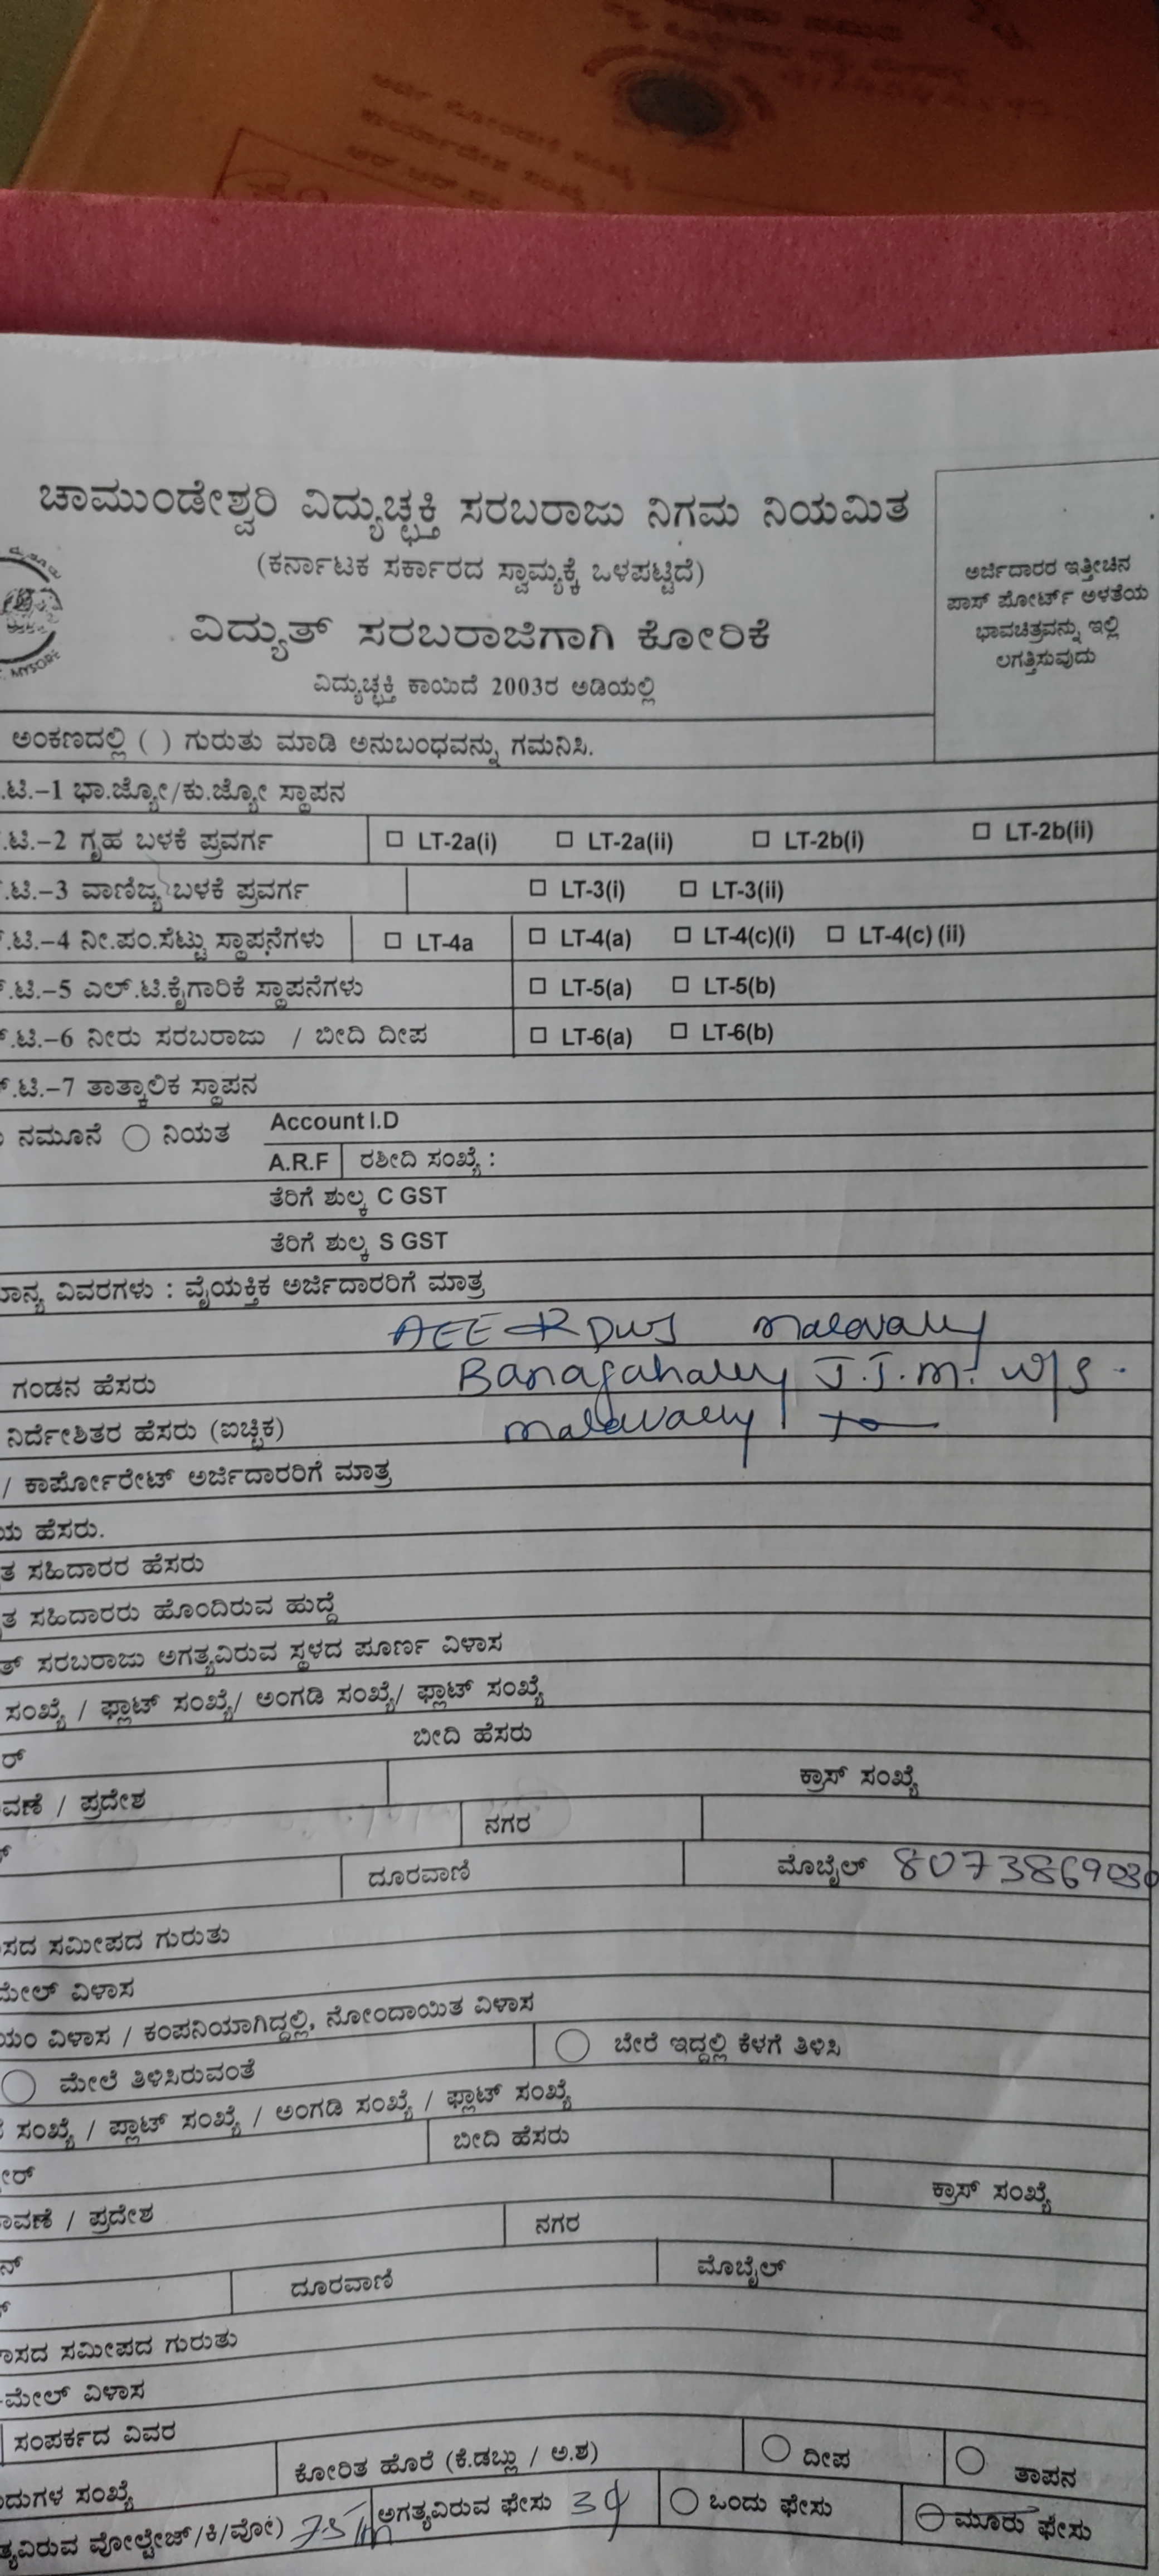 ಚಾಮುಂಡೇಶ್ವರಿ ವಿದ್ಯುಚ್ಛಕ್ತಿ ಸರಬರಾಜು ನಿಗಮ ನಿಯಮಿತ
(ಕರ್ನಾಟಕ ಸರ್ಕಾರದ ಸ್ವಾಮ್ಯಕ್ಕೆ ಒಳಪಟ್ಟಿದೆ)
ವಿದ್ಯುತ್ ಸರಬರಾಜಿಗಾಗಿ ಕೋರಿಕೆ
ವಿದ್ಯುಚ್ಛಕ್ತಿ ಕಾಯಿದೆ 2003ರ ಅಡಿಯಲ್ಲಿ
MYSORE
ಅರ್ಜಿದಾರರ ಇತ್ತೀಚಿನ
ಪಾಸ್ ಪೋರ್ಟ್ ಅಳತೆಯ
ಭಾವಚಿತ್ರವನ್ನು ಇಲ್ಲಿ
ಲಗತ್ತಿಸುವುದು
ಅಂಕಣದಲ್ಲಿ ( ) ಗುರುತು ಮಾಡಿ ಅನುಬಂಧವನ್ನು ಗಮನಿಸಿ.
.ಟಿ.–1 ಭಾ.ಜ್ಯೋ/ಕು.ಜ್ಯೋ ಸ್ಥಾಪನ
.ಟಿ.–2 ಗೃಹ ಬಳಕೆ ಪ್ರವರ್ಗ ☐ LT-2a(i) ☐ LT-2a(ii) ☐ LT-2b(i) ☐ LT-2b(ii)
.ಟಿ.–3 ವಾಣಿಜ್ಯ ಬಳಕೆ ಪ್ರವರ್ಗ ☐ LT-3(i) ☐ LT-3(ii)
.ಟಿ.–4 ನೀ.ಪಂ.ಸೆಟ್ಟು ಸ್ಥಾಪನೆಗಳು ☐ LT-4a ☐ LT-4(a) ☐ LT-4(c)(i) ☐ LT-4(c) (ii)
.ಟಿ.–5 ಎಲ್.ಟಿ.ಕೈಗಾರಿಕೆ ಸ್ಥಾಪನೆಗಳು ☐ LT-5(a) ☐ LT-5(b)
.ಟಿ.–6 ನೀರು ಸರಬರಾಜು / ಬೀದಿ ದೀಪ ☐ LT-6(a) ☐ LT-6(b)
.ಟಿ.–7 ತಾತ್ಕಾಲಿಕ ಸ್ಥಾಪನ
ನಮೂನೆ ◯ ನಿಯತ Account I.D
A.R.F ರಶೀದಿ ಸಂಖ್ಯೆ :
ತೆರಿಗೆ ಶುಲ್ಕ C GST
ತೆರಿಗೆ ಶುಲ್ಕ S GST
ವಿವರಗಳು : ವೈಯಕ್ತಿಕ ಅರ್ಜಿದಾರರಿಗೆ ಮಾತ್ರ
AEE RDWS Malavally
ಗಂಡನ ಹೆಸರು Banagahally J.J.M. W/S
ನಿರ್ದೇಶಿತರ ಹೆಸರು (ಐಚ್ಛಿಕ) Malavally
/ ಕಾರ್ಪೋರೇಟ್ ಅರ್ಜಿದಾರರಿಗೆ ಮಾತ್ರ
ಯ ಹೆಸರು.
ತ ಸಹಿದಾರರ ಹೆಸರು
ತ ಸಹಿದಾರರು ಹೊಂದಿರುವ ಹುದ್ದೆ
ತ್ ಸರಬರಾಜು ಅಗತ್ಯವಿರುವ ಸ್ಥಳದ ಪೂರ್ಣ ವಿಳಾಸ
ಸಂಖ್ಯೆ / ಫ್ಲಾಟ್ ಸಂಖ್ಯೆ/ ಅಂಗಡಿ ಸಂಖ್ಯೆ/ ಫ್ಲಾಟ್ ಸಂಖ್ಯೆ
ರ್ ಬೀದಿ ಹೆಸರು
ವಣೆ / ಪ್ರದೇಶ ಕ್ರಾಸ್ ಸಂಖ್ಯೆ
ನಗರ
ದೂರವಾಣಿ ಮೊಬೈಲ್ 8073869030
ಸದ ಸಮೀಪದ ಗುರುತು
ಮೇಲ್ ವಿಳಾಸ
ಯಂ ವಿಳಾಸ / ಕಂಪನಿಯಾಗಿದ್ದಲ್ಲಿ, ನೋಂದಾಯಿತ ವಿಳಾಸ
◯ ಮೇಲೆ ತಿಳಿಸಿರುವಂತೆ ◯ ಬೇರೆ ಇದ್ದಲ್ಲಿ ಕೆಳಗೆ ತಿಳಿಸಿ
ಸಂಖ್ಯೆ / ಪ್ಲಾಟ್ ಸಂಖ್ಯೆ / ಅಂಗಡಿ ಸಂಖ್ಯೆ / ಫ್ಲಾಟ್ ಸಂಖ್ಯೆ
ರ್ ಬೀದಿ ಹೆಸರು
ಾವಣೆ / ಪ್ರದೇಶ ಕ್ರಾಸ್ ಸಂಖ್ಯೆ
ನ್ ನಗರ
ದೂರವಾಣಿ ಮೊಬೈಲ್
ಾಸದ ಸಮೀಪದ ಗುರುತು
-ಮೇಲ್ ವಿಳಾಸ
ಸಂಪರ್ಕದ ವಿವರ
ದುಗಳ ಸಂಖ್ಯೆ ಕೋರಿತ ಹೊರೆ (ಕೆ.ಡಬ್ಲು / ಅ.ಶ) ◯ ದೀಪ ◯ ತಾಪನ
ತ್ಯವಿರುವ ವೋಲ್ಟೇಜ್/ಕಿ/ವೋ) ಅಗತ್ಯವಿರುವ ಫೇಸು 3ϕ ◯ ಒಂದು ಫೇಸು ◯ ಮೂರು ಫೇಸು